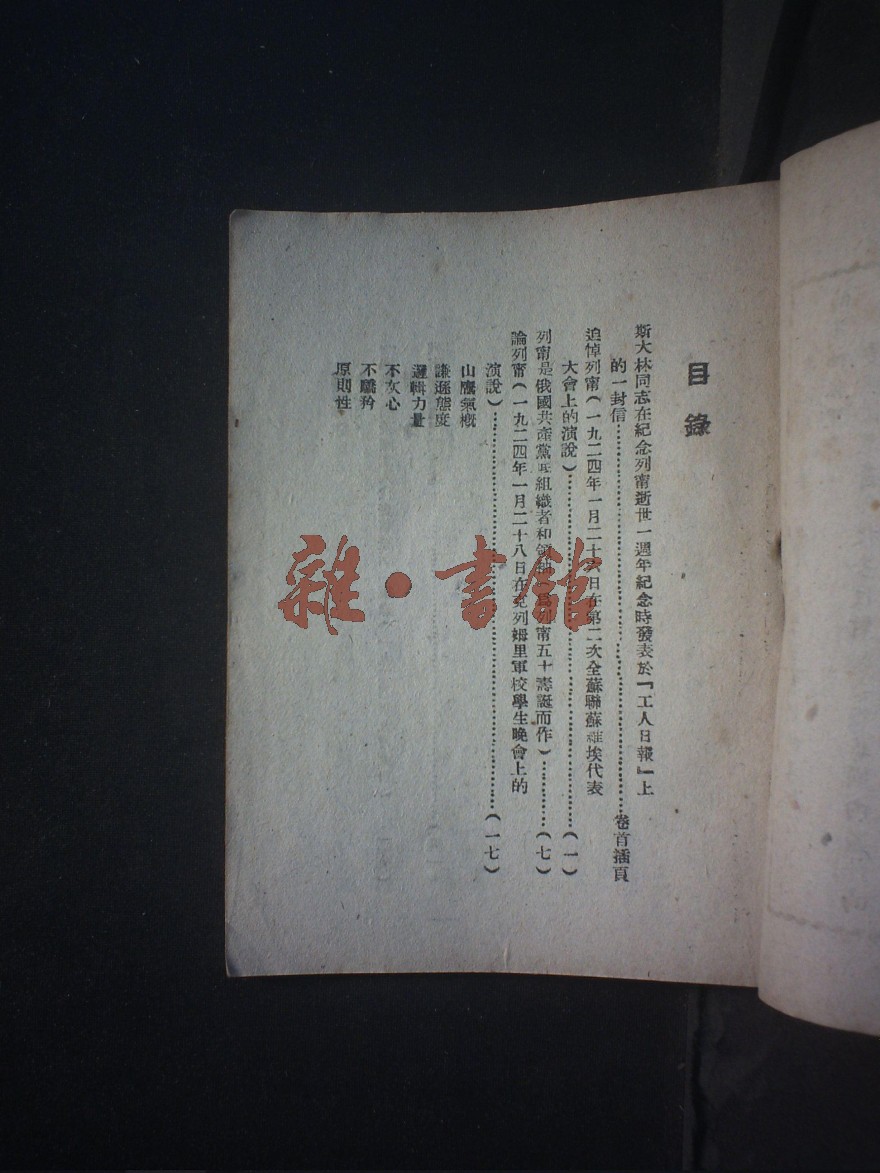 目錄
斯大林同志在紀念列甯逝世一週年紀念時發表於『工人日報』上
的一封信……………………卷首插頁
追悼列甯(一九二四年一月二十六日在第二次全蘇聯蘇維埃代表
大會上的演說)……………………(一)
列甯是俄國共產黨底組織者和領袖(爲列甯五十壽誕而作)……(七)
論列甯(一九二四年一月二十八日在克列姆里軍校學生晚會上的
演說)……………………(一七)
山鷹氣概
謙遜態度
邏輯力量
不灰心
不驕矜
原則性
雜·書館